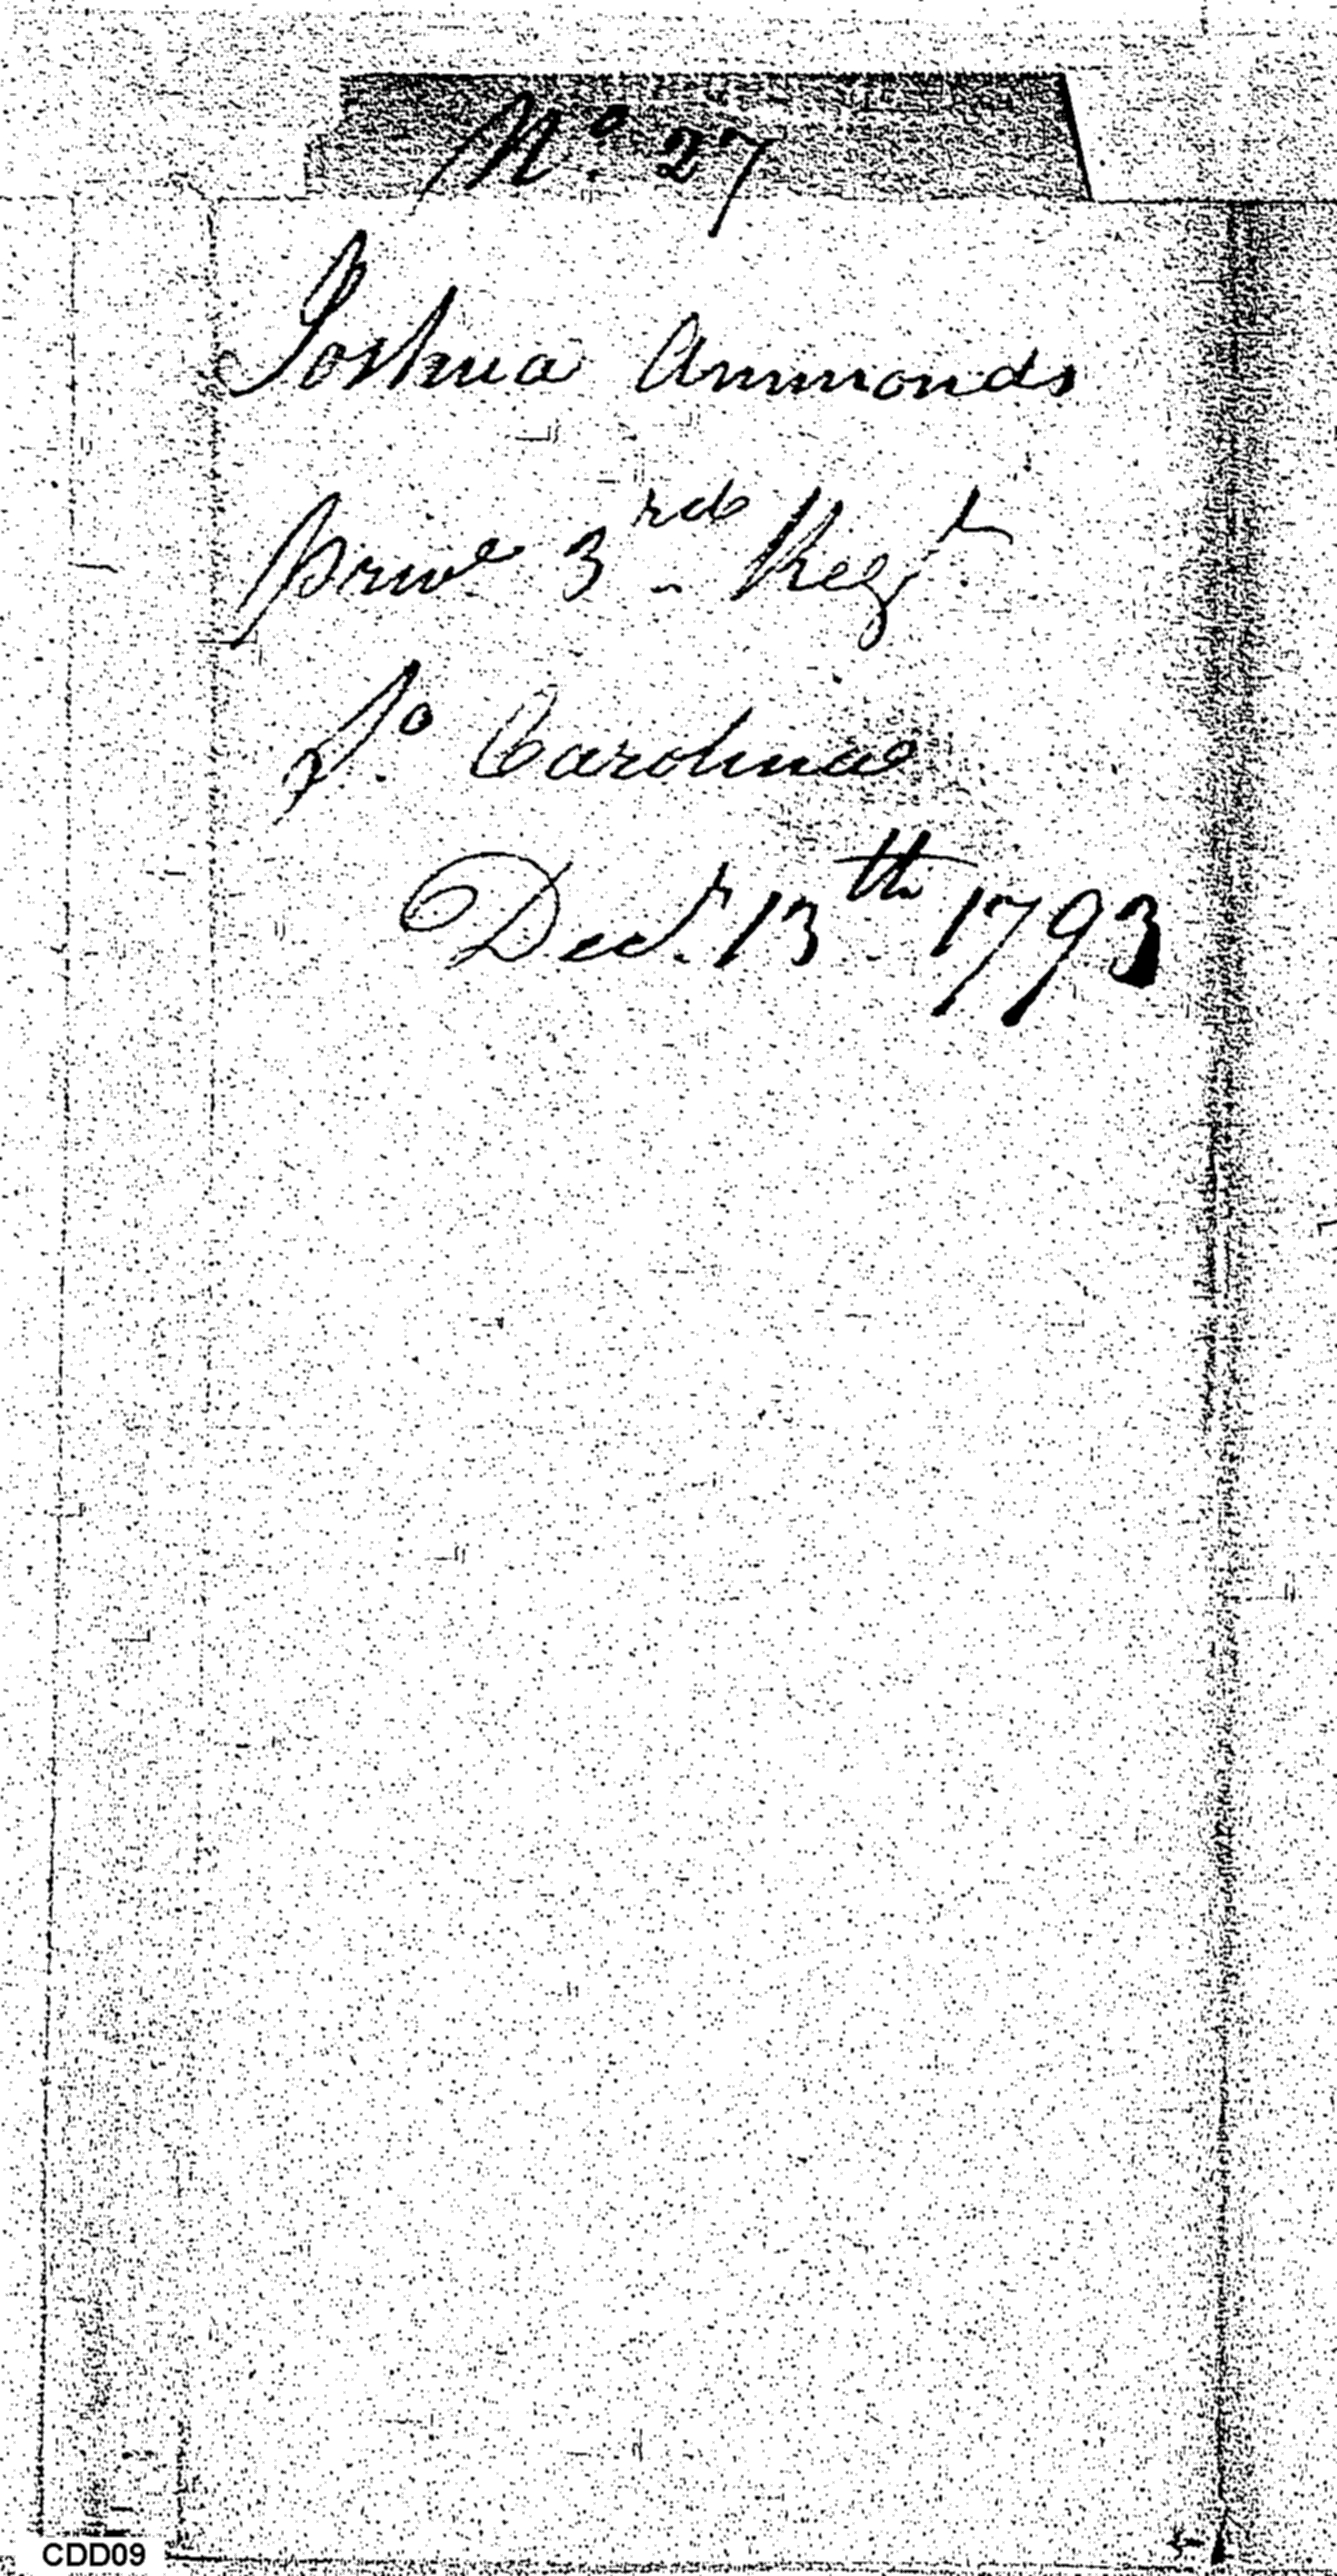 No. 27
Joshua Ammonds
Prive 3rd Regt.
So. Carolina
Decr. 13th 1793
CDD09